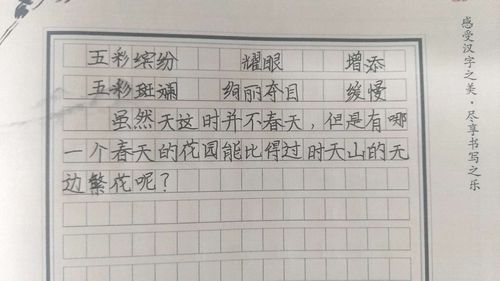 五彩缤纷 耀眼 增添
五彩斑斓 绚丽夺目 缓慢
虽然天这时并不春天，但是有哪
一个春天的花园能比得过时天山的无
边繁花呢？
感受汉字之美·尽享书写之乐